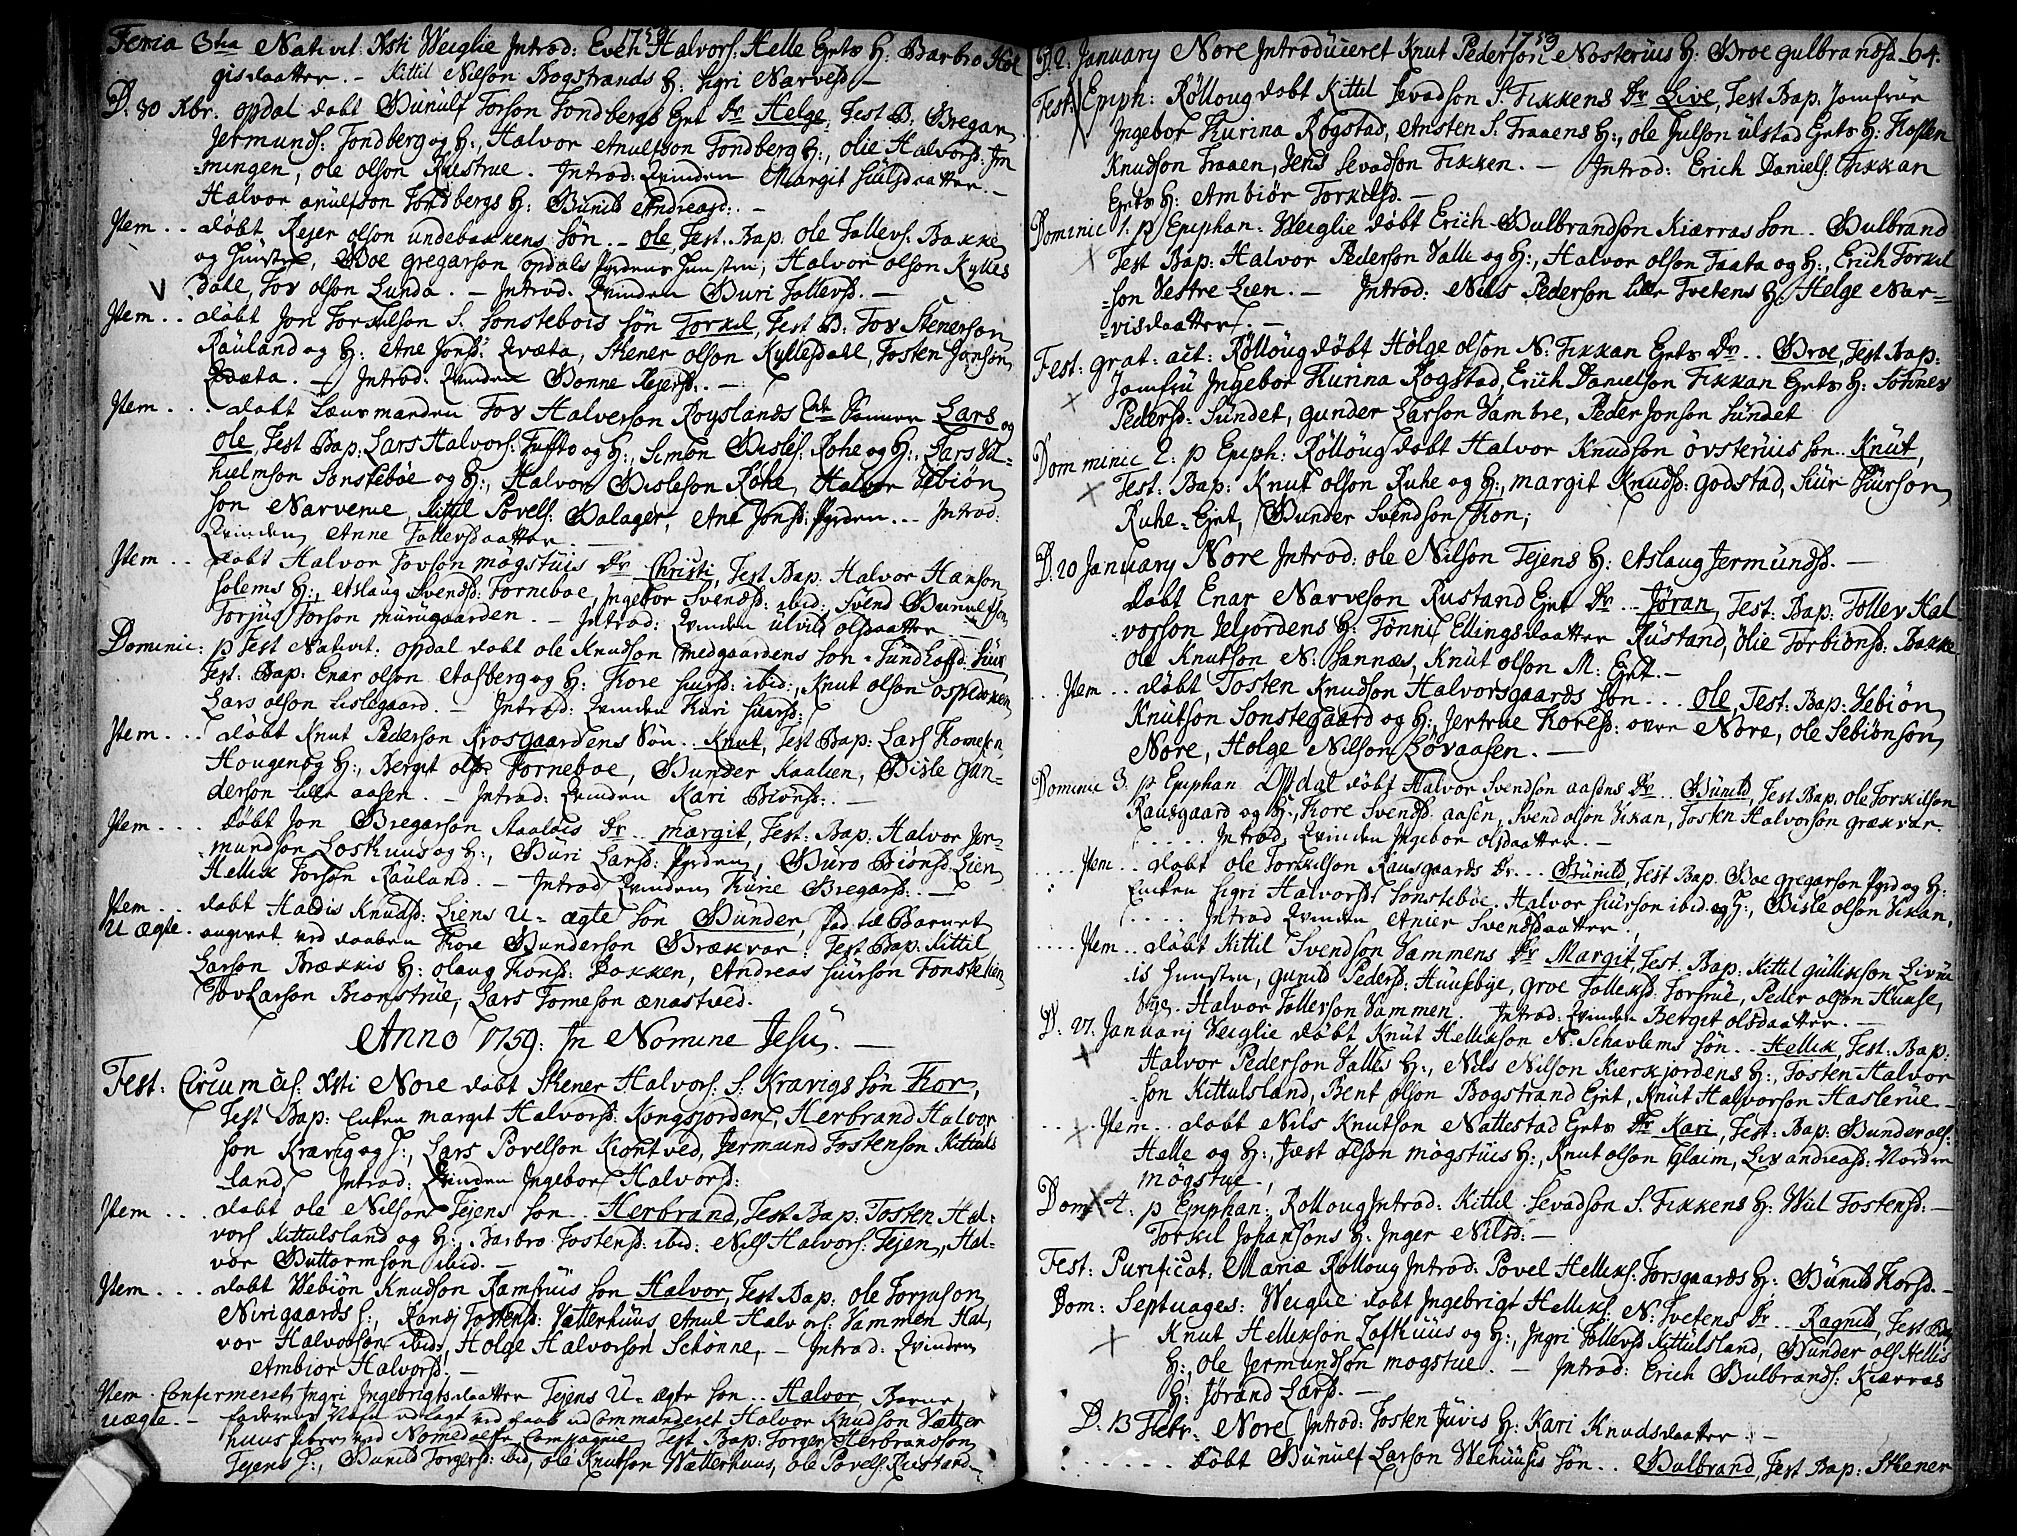 1758
Feria 3tia Nativit: Xsti Weiglie Introd: Even Halvors: Helle Eyets H: Barbro Hel
gisdaatter. - Kittil Nilson Bogstrands H: Sigri Narvesd. -
D. 30 Xbr. Opdal døbt Gunulf Torson Tondbergs Eyet Dr Helge, Test B. Gregar
Jermunds: Tondberg og H:, Halvor Anulfson Tondberg H:, Olie Halvorsd: In
-mingen, Ole Olson Ruestrue. Introd: Qvinden Margit Siulsdaatter. -
Halvor Anulfson Tondbergs H: Gunild Andreasd: -
Item . . døbt Rejer Olson Undebakkens Søn. - Ole, Test. Bap. Ole Tollevs: Bakke
og Hustr, Groe Gregarson Opdals Pyrdens Hustru, Halvor Olson Kylles
dale, Tov Olson Lunda. - Introd: Qvinden Guri Tollevsd. -
Item . . døbt Jon Torkilson S. Sønstebøis Søn Torkil, Test B: Tov Stenerson
Rauland og H: Ane Jonsd: Qvæta, Skener Olson Kyllesdahl, Tosten Jonson
Qvæta. - Introd: Qvinden Gonne Rejersd: . -
Item . . . døbt Lænsmanden Tov Halverson Røyslands Sønner Lars og
Ole, Test Bap: Lars Halvors: Tuffto og H:, Simon Gisles: Røhe og H:, Lars Vil-
hielmson Sønstebøe og H:, Halvor Gisleson Røhe, Halvor Sebiøn
son Narverue, Kittil Povels: Galager, Ane Jonsd: Pyrden. . . Introd:
Qvinden Anne Tollevsdaatter. -
Item . . . døbt Halvor Tovson Møgstuis Dr Christi, Test Bap: Halvor Hanson
Solems H:, Aslaug Svendsd: Torneboe, Ingebor Svendsd: ibid: Svend Gunulfson
Torjus Torson Muugaarden. - Introd: Qvinden Ulvild Olsdaatter -
Dominic: p Fest Nativit: Opdal døbt Ole Knudson Medgaardens Søn - Tundhoffd. Siur
Test: Bap: Enar Olson Aasberg og H: Tore Siursd: ibid:, Knut Olson Ospedokken
Lars Olson Lislegaard. - Introd: Qvinden Kari Siursd:
Item . . . døbt Knut Pederson Krosgaardens Søn. . Knut, Test Bap: Lars Tomeson
Hougen og H:, Bergit Olsd: Torneboe, Gunder Kaalien, Gisle Gun-
derson Lille Aasen. - Introd: Qvinden Kari Biønsd: -
Item . . . . døbt Jon Gregarson Aaalois Dr . . Margit, Test: Bap: Halvor Jer-
-mundson Loskuus og H:, Guri Larsd: Pyrden, Guro Biønsd: Lien
Hellik Torson Rauland. - Introd Qvinden Turie Gregarsd: . -
Item . . døbt Haldis Knudsd: Liens U-ægte Søn Gunder, fad. til Barnet
U ægte. - angivet ved daaben Tore Gunderson Grækvar. Test Bap: Kittil
Larson Brækkis H: Olaug Tonsd: Dokken, Andreas Siurson Tonstelien
Tov Larson Bionstrue, Lars Tomeson Ænastved.
Anno 1759: In Nomine Jesu. -
Fest: Circumcis: Xsti Nore døbt Skener Halvors: S. Kravigs Søn Tor,
Test Bap: Enken Margit Halvorsd: Kongsjorden, Herbrand Halvor
son Kravig og H:, Lars Povelson Kiontved, Jermund Tostenson Kittuls
-land, Introd: Qvinden Ingebor Halvorsd:
Item . . . døbt Ole Nilson Tejens Søn . . Herbrand, Test Bap: Tosten Hal-
vors Kittulsland og H:, Barbro Tostensd: ibid: Nils Halvors: Tejen, Hal-
vor Guttormson ibid. -
Item . . . . døbt Webiøn Knudson Ramsruis Søn Halvor, Test Bap: Ole Torjuson
Norigaards H:, Ranøj Tostensd: Vætterhuus Anul Halvors: Sammen Hal,
vor Halvorson ibid:, Holge Halvorson Schønne, - Introd: Qvinden
Ambiør Halvorsd. -
Item . Confermeret Ingri Ingebrigtsdaatter Tejens U-ægte Søn . . Halvor, Barne
uægte. - faderens Nafn udlagt ved daab ud Commanderet Halvor Knudson Vætter
huus ved Nomedalske Compagnie, Test Bap: Torger Herbrandson
Tejens H:, Gunild Torgersd: ibid, Ole Knutson Wætterhuus, Ole Povels: Rustand -
1759
64.
D 2. January Nore Introduceret Knut Pederson Nosteruis H: Groe Gulbrandsd.
Fest: Epiph: Rolloug døbt Kittil Sevadson S. Fikkens Dr Live, Test Bap. Jomfrue
Ingebor Kurina Rogstad, Ansten S. Traaens H:, Ole Julson Ulstad Eyets H: Tosten
Knudson Traaen, Jens Sevadson Fikken. - Introd: Erich Daniels: Fikkan
Eyets H: Ambiør Torkilsd. -
Dominic 1. p Epiphan: Weiglie døbt Erich Gulbrandson Kiærras Søn. Gulbrand
Test Bap: Halvor Pederson Valle og H:, Halvor Olson Taata og H:, Erich Torkil
-son Vestre Lien. - Introd: Nils Pederson Lille Tvetens H: Helge Nar-
-visdaatter. -
Fest: grat: act: Rolloug døbt Holge Olson N: Fikkan Eyets Dr . . Groe, Test Bap:
Jomfru Ingebor Kurina Rogstad, Erich Danielson Fikkan Eyets H: Sønnev
Pedersd: Sundet, Gunder Larson Vambre, Peder Jonson Sundet
Domminic 2: p Epiph: Rolloug døbt Halvor Knudson Øvsteruis Søn. Knut,
Test: Bap: Knut Olson Ruhe og H:, Margit Knudsd: Godstad, Siur Siurson
Ruhe-Eyet, Gunder Svendson Kon;
D. 20 January Nore Introd: Ole Nilson Tejens H: Aslaug Jermundsd. -
døbt Enar Narveson Rustand Eyet Dr . . Jøran, Test: Bap: Tollev Hal
-vorson Jeljordens H: Tønni Ellingsdaatter Rustand, Olie Torbiønsd: Bakke
Ole Knutson N: Sannæs, Knut Olson M: Eyet. -
. . . Item . . døbt Tosten Knudson Halvorsgaards Søn . . . Ole, Test: Bap: Sebiøn
Knutson Sønstegaard og H:, Jertrue Toresd: over Nore, Ole Sebiønson
Nore, Holge Nilson Løvaasen. -
Dominic 3. p Epiphan Opdal døbt Halvor Svendson Aasens Dr . . Gunild, Test Bap. Ole Torkilson
Rausgaard og H:, Tore Svendsd. Aasen, Svend Olson Vikan, Tosten Halvorson Grækvar.
. . . . . Introd Qvinden Ingebor Olsdaatter. -
. . . . Item . . . døbt Ole Torkilson Rausgaards Dr . . . Gunild, Test Bap. Groe Gregarson Pyrd og H:
Enken Sigri Halvorsd: Sønstebøe, Halvor Siurson ibid og H:, Gisle Olson Vikan,
. . . . . Introd Qvinden Anier Svendsdaatter.
. . . . Item . . døbt Kittil Svendson Vammens Dr Margit, Test. Bap: Kittil Gullikson Livru
is Hustru, Gunild Pedersd: Huusebye, Groe Tolleksd. Forsrue, Peder Olson Huuse,
bye. Halvor Tollefson Vammen. Introd: Qvinden Bergit Olsdaatter. -
D: 21. January Weiglie døbt Knut Hellikson N: Schavlems Søn . . Hellik, Test: Bap:
Halvor Pederson Valles H:, Nils Nilson Kierkjordens H:, Tosten Halvor
-son Kittulsland, Bent Olson Bogstrand Eyet, Knut Halvorson Hasterue -
. . . . Item . . døbt Nils Knutson Nattestad Eyets Dr Kari, Test: Bap: Gunder Ols:
Helle og H:, Jæst Olson Møgstuis H:, Knut Olson Glaim, Liv Andreasd: Nordre
Møgstue,
Dom: 4. p Epiphan: Rolloug Introd: Kittil Sevadson S. Fikkens H: Wiil Tostensd: -
Torkil Johansons H: Inger Nilsd: -
Fest: Purificat: Mariæ Rolloug Introd: Povel Helliks: Torsgaards H: Gunild Torsd. -
Dom: Septuages: Weiglie døbt Ingebrigt Helliks: N: Tvetens Dr . . Ragnild, Test Bap
Knut Hellikson Loskuus og H:, Ingri Tollevsd Kittulsland, Gunder Ols Hellis
H:, Ole Jermundson Mogstue. - Introd: Erich Gulbrands: Kiærras
H: Jørand Larsd. -
D. 13 Febr: Nore Introd: Tosten Juvis H: Kari Knudsdaatter. -
. . . . . . døbt Gunulf Larson Wehuusis Søn . . Gulbrand, Test Bap: Skener